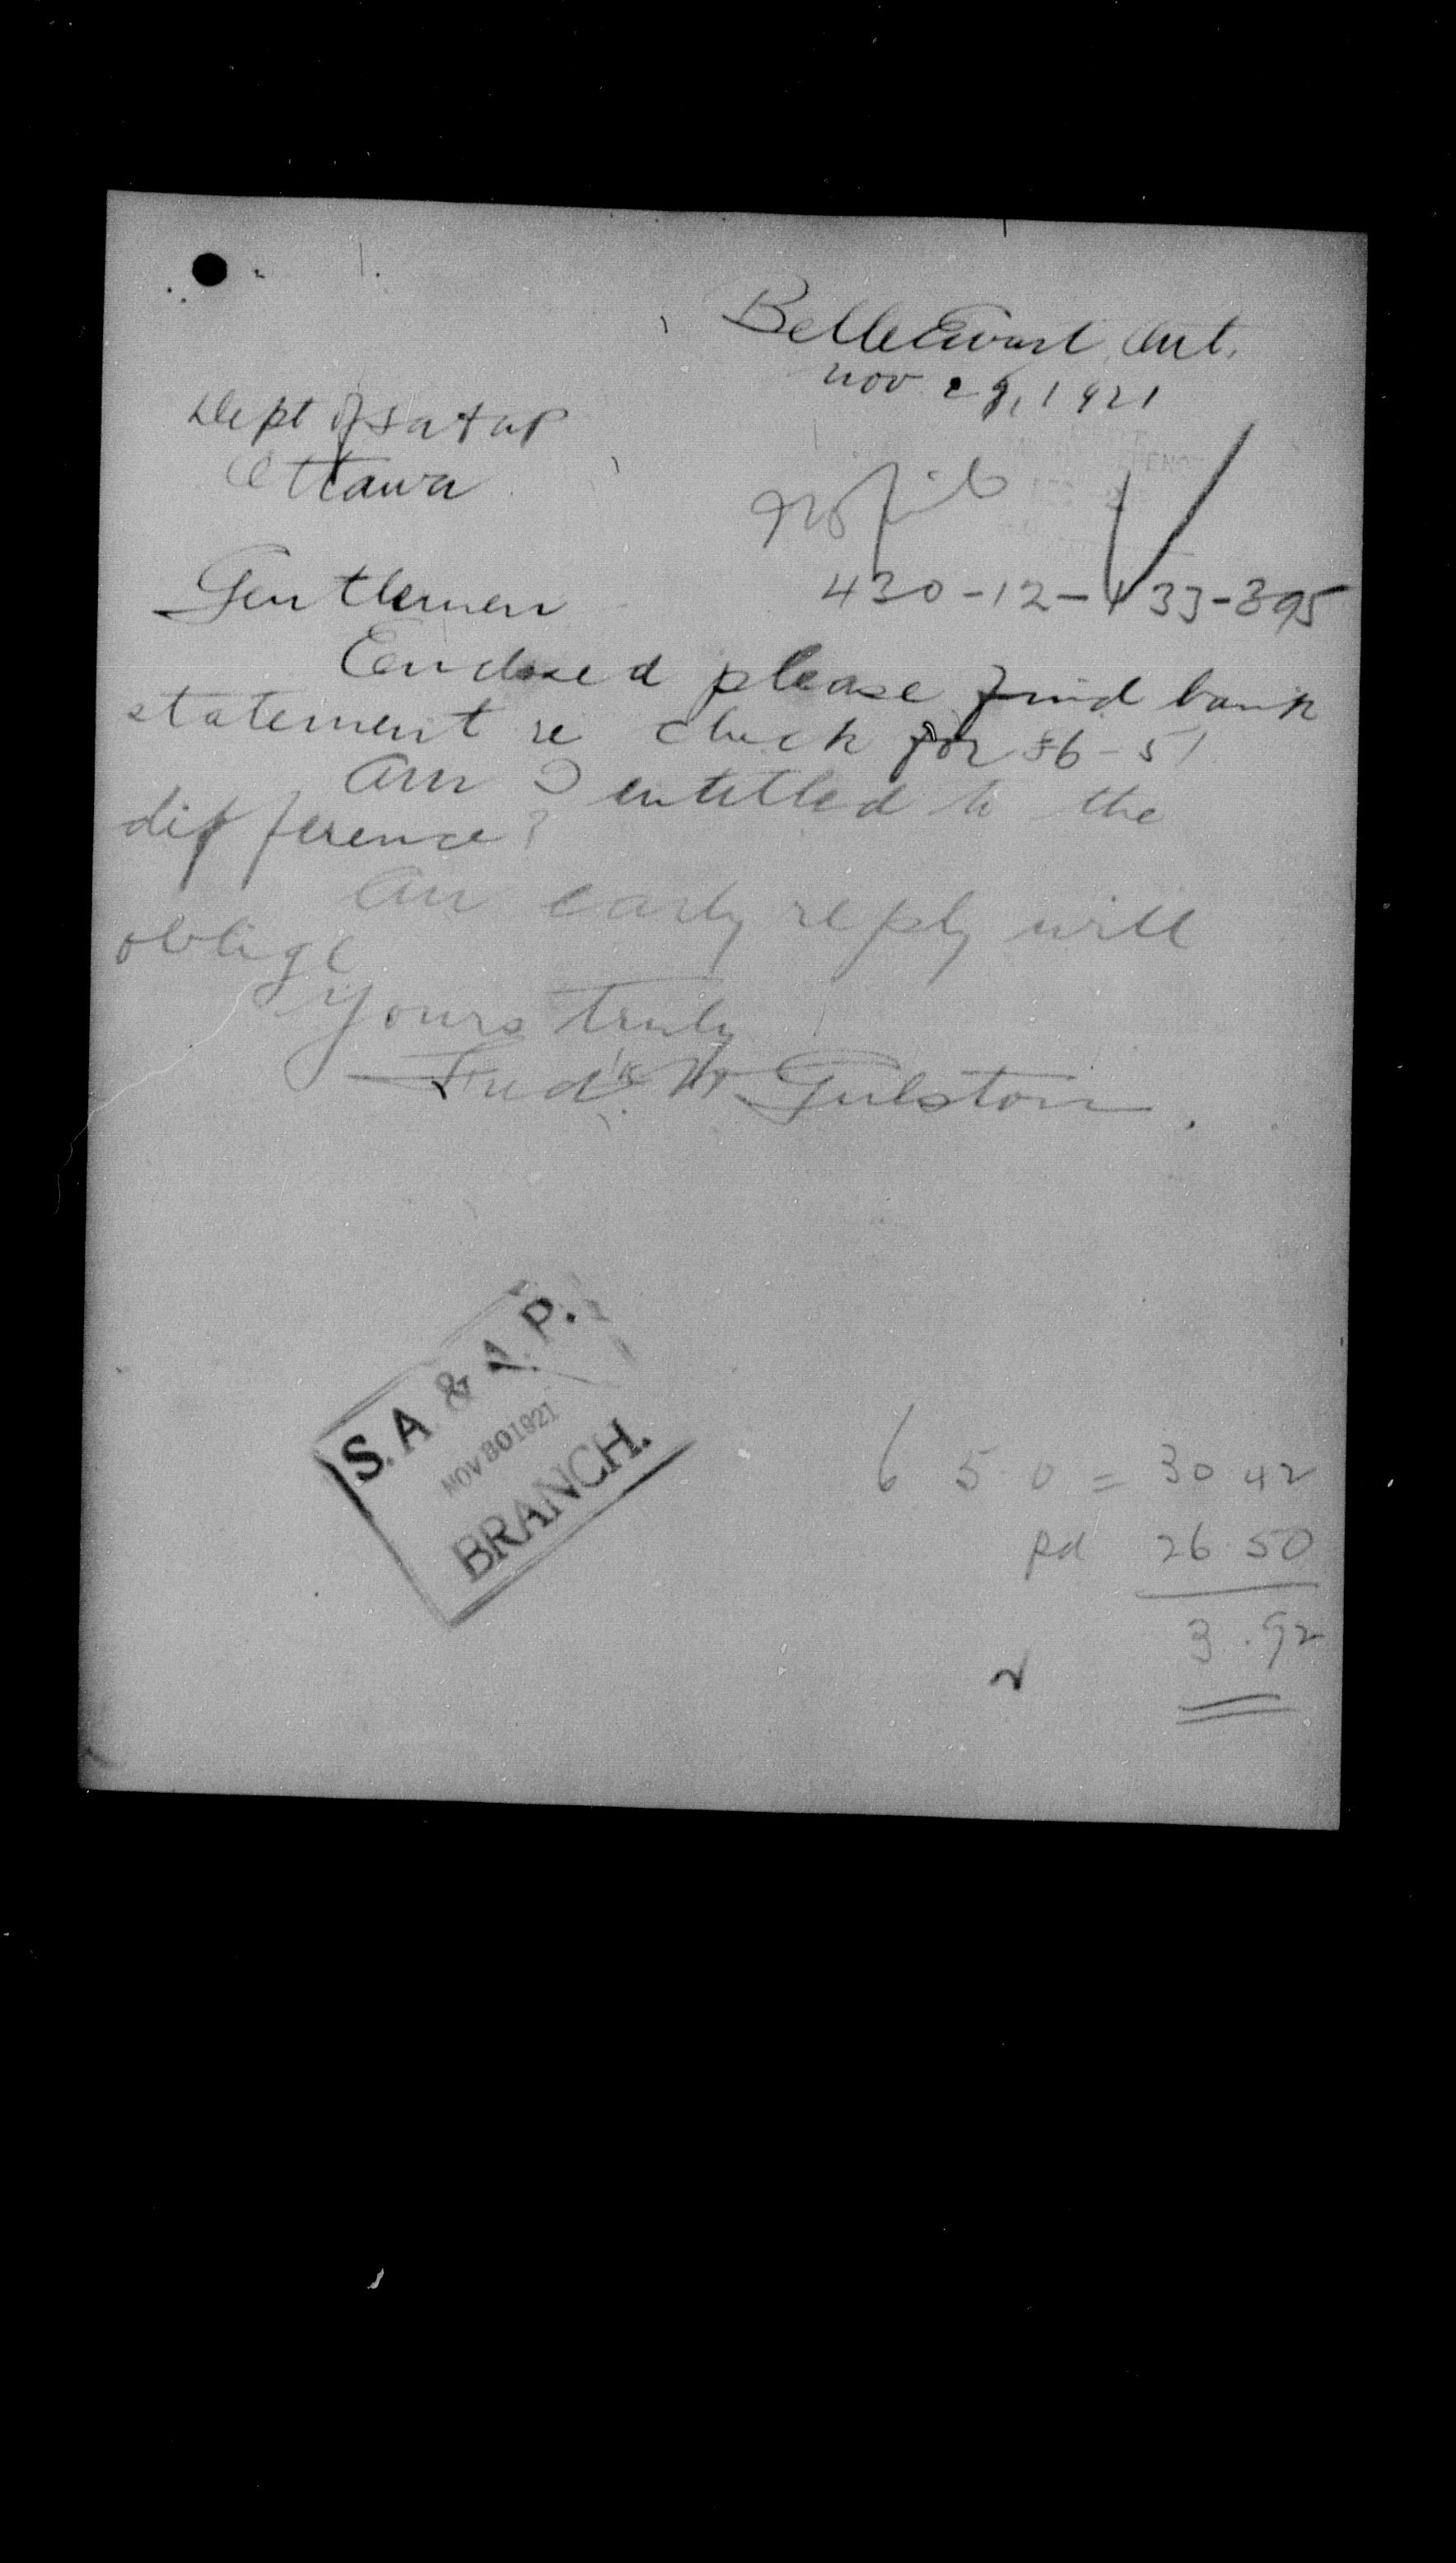 Belle Ewart, Ont.
Nov 29, 1921
Dept of S A & A P
Ottawa
No file
430-12-133-395
Gentlemen
Enclosed please find bank
statement re check for $6-51
Am I entitled to the
difference?
An early reply will
oblige
Yours truly
Fred'k W Gulston.
S.A. & A.P.
NOV 30 1921
BRANCH.
6 5 0 = 30 42
pd 26 50
3.92